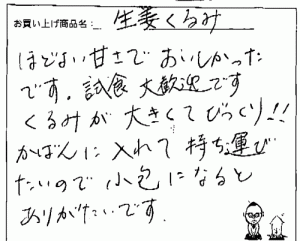 お買い上げ商品名： 生姜くるみ
ほどよい甘さで おいしかった
です。試食 大歓迎です
くるみが 大きくてびっくり!!
かばんに 入れて 持ち運び
たいので 小包になると
ありがたいです。